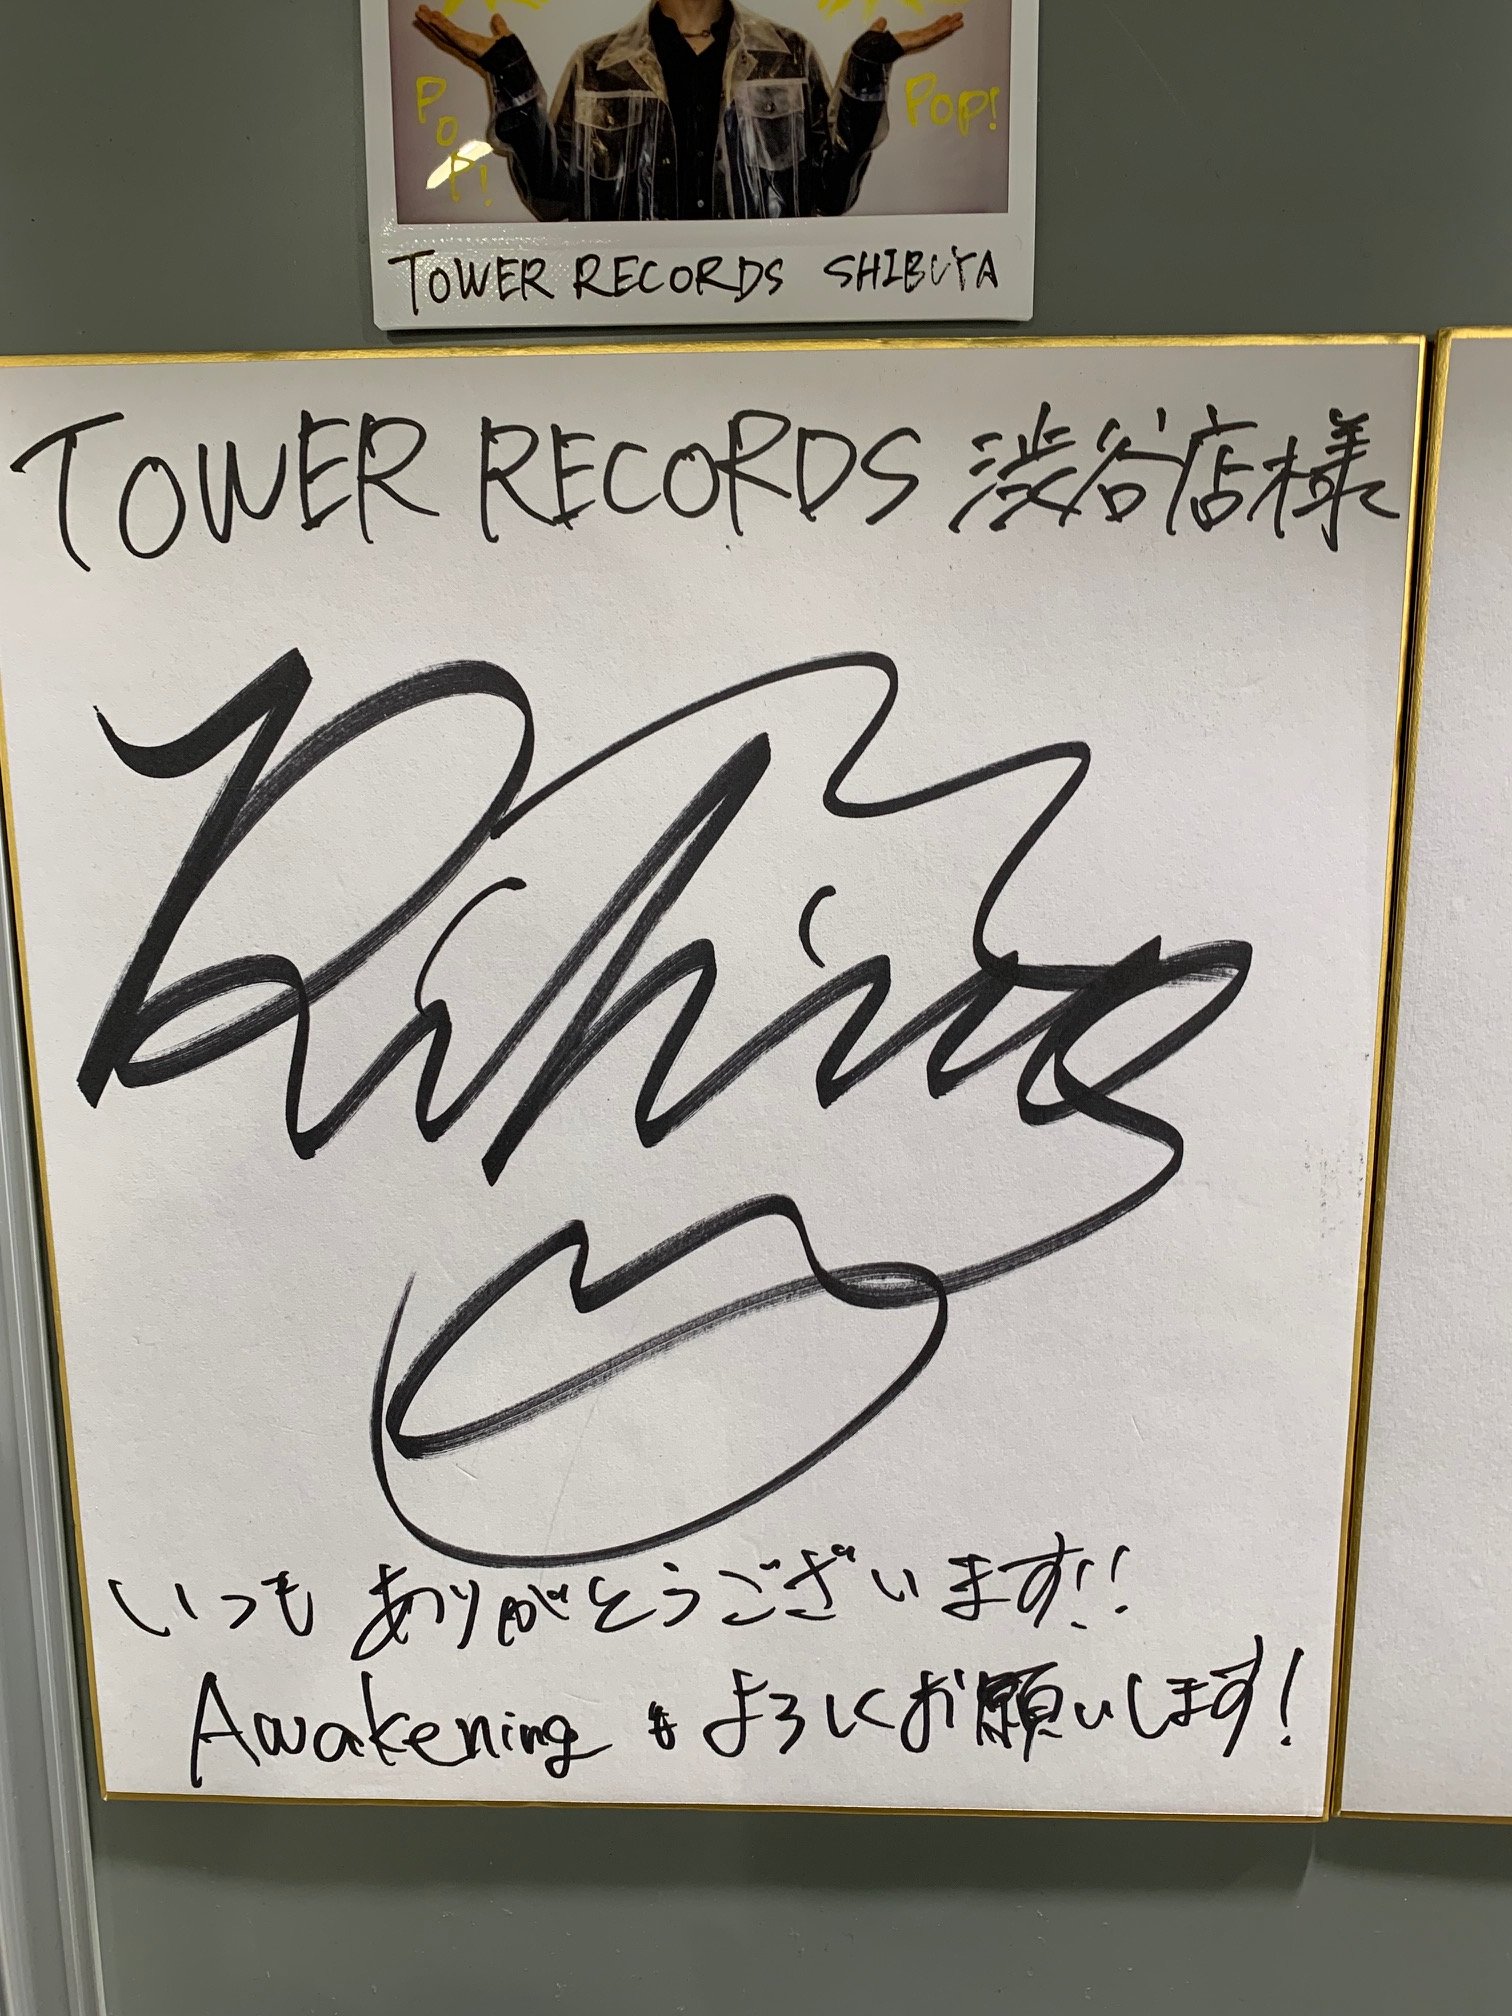 POP!
POP!
TOWER RECORDS SHIBUYA
TOWER RECORDS 渋谷店様
いつも ありがとうございます!!
Awakening も よろしくお願いします!